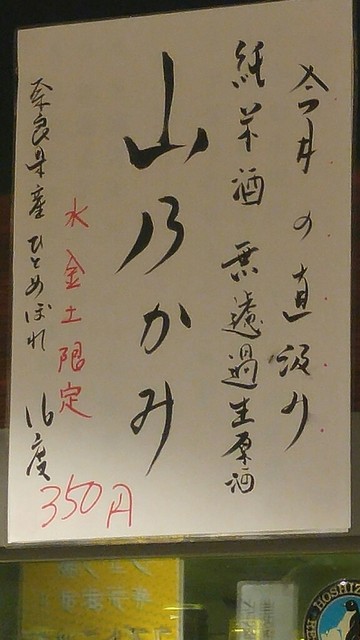 今井の直汲み
純米酒 無濾過生原酒
山乃かみ
水金土限定
奈良県産ひとめぼれ 16度
350円
HOSHIZ